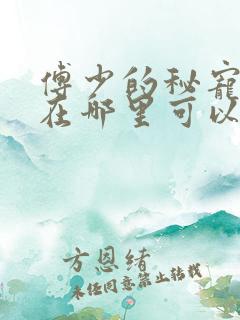 傅少的秘宠
在哪里可以
方恩绪
未经同意禁止转载